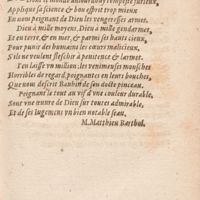 Dont le monde aniourdhuy rompeste furieux,
Appliquer sa science & bon esprit trop mieux
En nous peignant de Dieu les vengeresses armes.
Dieu a mille moyens, Dieu a mille gendarmes,
Et en terre, & en mer, & parmi ses hauts cieux,
Pour punir des humains les cœurs malicieux,
S'ils ne veulent fleschir à penitence & larmes.
I'en laisse vn million: les venimeuses mousches
Horribles de regard, poignantes en leurs bouches,
Que nous descrit Bauhin de son docte pinceau.
Peignant là tout au vif d'vne couleur durable,
Sont vne œuure de Dieu sur toutes admirable,
Et de ses iugemens vn bien notable seau.
M. Matthieu Barthol.